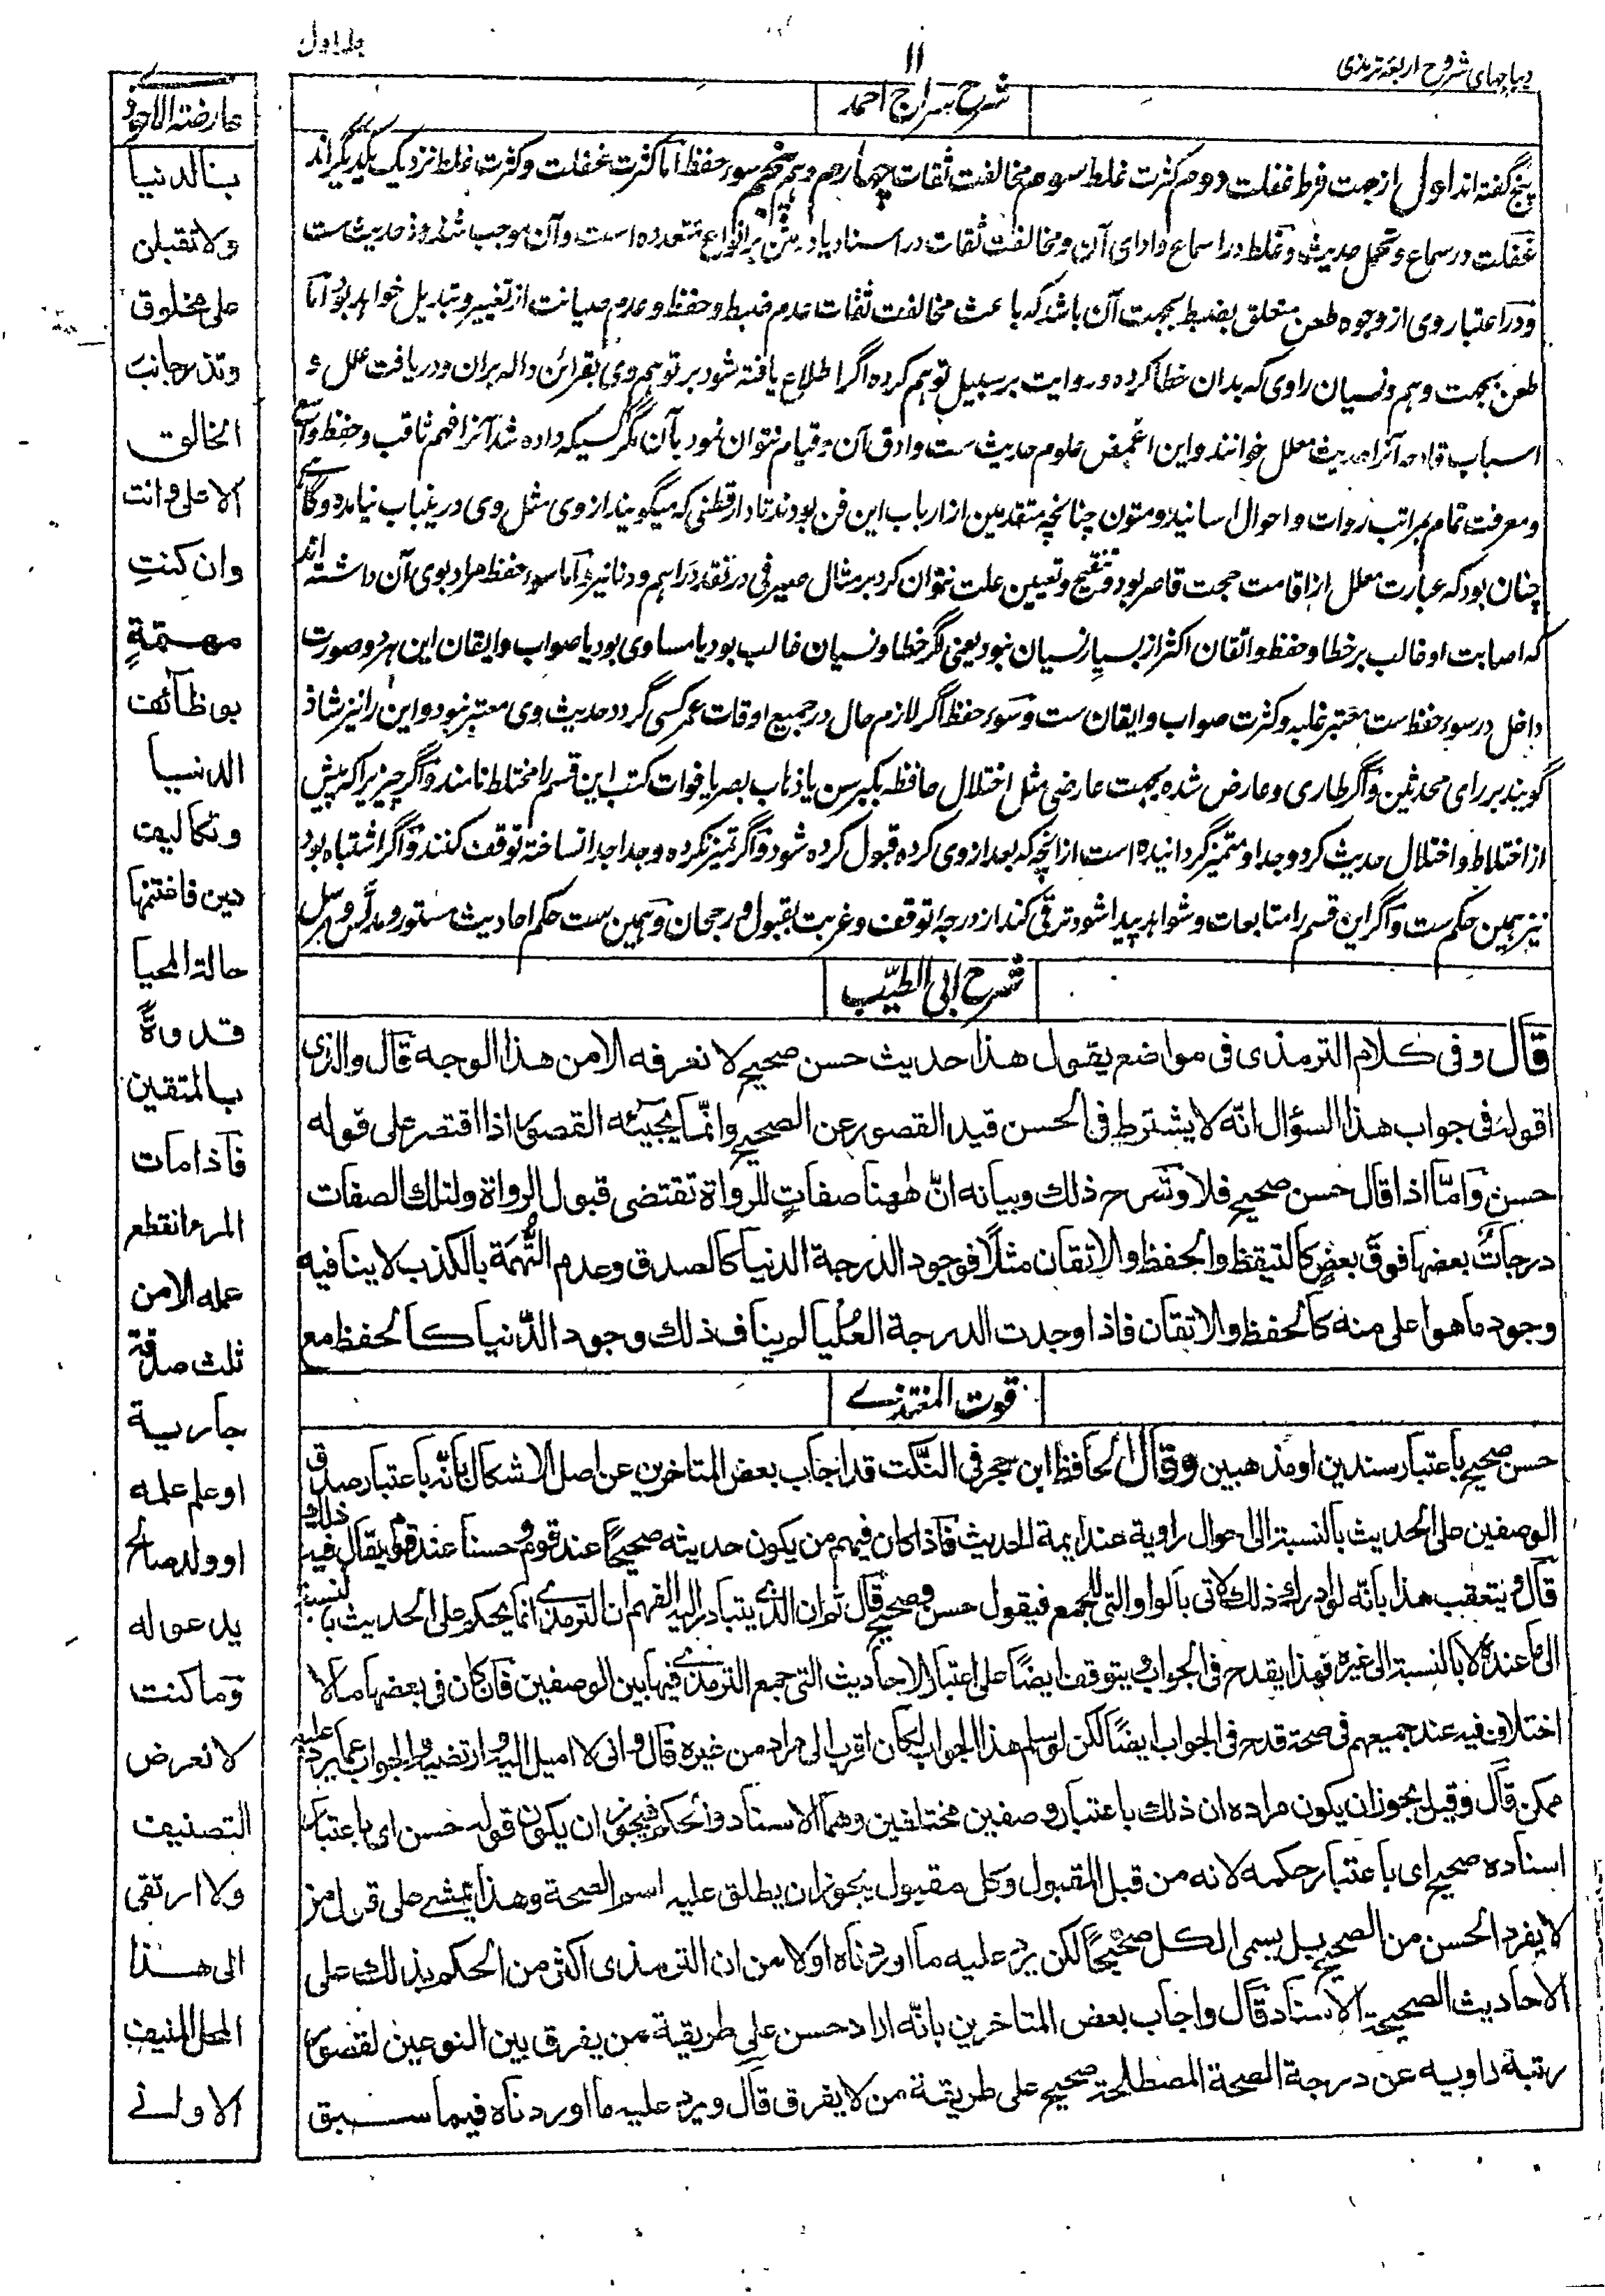 دیباچهای شروح اربعه ترمذی
۱۱
جلد اول
شرح سراج احمد
پنج گفته اند اول از جهت فرط غفلت دوم کثرت غلط سوم مخالفت ثقات چهارم وهم پنجم سوء حفظ اما کثرت غفلت وکثرت غلط نزدیک یکدیگر اند
غفلت در سماع وتحمل حدیث و غلط در اسماع وادای آن ومخالفت ثقات در اسناد یا در متن بر انواع متعدده است وآن موجب شذوذ حدیث ست
ودر اعتبار وی از وجوه طعن متعلق بضبط بجهت آن باشد که باعث مخالفت ثقات عدم ضبط وحفظ وعدم صیانت از تغییر وتبدیل خواهد بود اما
طعن بجهت وهم ونسیان راوی که بدان خطا کرده وروایت بر سبیل توهم کرده اگر اطلاع یافته شود بر توهم وی بقرائن داله بران ودریافت علل و
اسباب قادحه آنرا حدیث معلل خوانند واین اغمض علوم حدیث ست وادق آن وقیام نتوان نمود بآن مگر کسیکه داده شد آنرا فهم ثاقب وحفظ واسع
ومعرفت تمام بمراتب روات واحوال اسانید ومتون چنانچه متقدمین از ارباب این فن بودند تا دارقطنی که میگویند از وی مثل وی درینباب نیامده وگاهی
چنان بود که عبارت معلل از اقامت حجت قاصر بود وتنقیح وتعیین علت نتوان کرد بر مثال صیرفی در نقد دراهم ودنانیر اما سوء حفظ مراد بوی آن داشته اند
که اصابت او غالب بر خطا وحفظ واتقان اکثر از بسیار نسیان نبود یعنی اگر خطا ونسیان غالب بود یا مساوی بود با صواب وایقان این هر دو صورت
داخل در سوء حفظ ست معتبر غلبه وکثرت صواب وایقان ست وسوء حفظ اگر لازم حال در جمیع اوقات عمر کسی گردد حدیث وی معتبر نبود واین را نیز شاذ
گویند بر رای محدثین واگر طاری وعارض شده بجهت عارضی مثل اختلال حافظه بکبر سن یا ذهاب بصر یا فوات کتب این قسم را مختلط نامند واگر چیزیرا که پیش
از اختلاط واختلال حدیث کرد وجدا ومتمیز گردانیده است از آنچه که بعد از وی کرده قبول کرده شود واگر تمیز نکرده وجدا جدا نساخته توقف کنند واگر اشتباه بود
نیز همین حکم ست واگر این قسم را متابعات وشواهد پیدا شود ترقی کند از درجه توقف وغربت بقبول ورجحان وهمین ست حکم احادیث مستور ومدلس ومرسل
شرح ابی الطیّب
قال وفی کلام الترمذی فی مواضع یقول هذا حدیث حسن صحیح لا نعرفه الا من هذا الوجه قال والذی
اقوله فی جواب هذا السؤال انّه لا یشترط فی الحسن قید القصور عن الصحیح وانّما یجیئه القصور اذا اقتصر علی قوله
حسن وامّا اذا قال حسن صحیح فلا وشرح ذلك وبیانه انّ ههنا صفاتٍ للرواة تقتضی قبول الرواة ولتلك الصفات
درجاتٌ بعضها فوق بعضٍ کالتیقظ والحفظ والاتقان مثلًا فوجود الدرجة الدنیا کالصدق وعدم التُّهمَة بالکذب لا ینافیه
وجود ما هو اعلی منه کالحفظ والاتقان فاذا وجدت الدرجة العُلیا لم یناف ذلك وجود الدّنیا کالحفظ مع
قوت المغتذی
حسن صحیح باعتبار سندین او مذهبین وقال الحافظ ابن حجر فی النکت قد اجاب بعض المتاخرین عن اصل الاشکال بانّه باعتبار صدق
الوصفین علی الحدیث بالنسبة الی احوال راویه عند ایمة الحدیث فاذا کان فیهم من یکون حدیثه صحیحًا عند قوم وحسنًا عند قوم یقال فیه ذلك
قال ویتعقب هذا بانّه لو اراد ذلك لاتی بالواو التی للجمع فیقول حسن وصحیح قال ثم ان الذی یتبادر الیه الفهم ان الترمذی انما یحکم علی الحدیث بالنسبة
الی ما عنده لا بالنسبة الی غیره فهذا یقدح فی الجواب ویتوقف ایضًا علی اعتبار الاحادیث التی جمع الترمذی فیها بین الوصفین فان کان فی بعضها ما لا
اختلاف فیه عند جمیعهم فی صحته قدح فی الجواب ایضًا لکن لو سلم هذا الجواب لکان اقرب الی مراده من غیره قال وانی لا امیل الیه وارتضیه والجواب عما یرد علیه
ممکن قال وقیل یجوز ان یکون مراده ان ذلك باعتبار وصفین مختلفین وهما الاسناد والحکم فیجوز ان یکون قوله حسن ای باعتبار
اسناده صحیح ای باعتبار حکمه لانه من قبل المقبول وکل مقبول یجوز ان یطلق علیه اسم الصحة وهذا یمشی علی قول من
لا یفرد الحسن من الصحیح بل یسمی الکل صحیحًا لکن یرد علیه ما اوردناه اولا من ان الترمذی اکثر من الحکم بذلك علی
الاحادیث الصحیحة الاسناد قال واجاب بعض المتاخرین بانّه اراد حسن علی طریقة من یفرق بین النوعین لقصور
رتبة راویه عن درجة الصحة المصطلحة صحیح علی طریقة من لا یفرق قال ویرد علیه ما اوردناه فیما سبق
عارضة الاحوذی
بنا الدنیا
ولا تقبلن
علی مخلوق
وتذر جانب
الخالق
الاعلی وانت
وان کنتِ
مهتمّةٍ
بوظائف
الدنیا
وتکالیف
دین فاغتنمها
حالة المحیا
قدوةً
بالمتقین
فاذا مات
المرء انقطع
عمله الا من
ثلث صدقة
جاریة
او علم علمه
او ولد صالح
یدعو له
وما کنت
لا تعرض
التصنیف
ولا ارتقی
الی هذا
المحل المنیف
الاولی